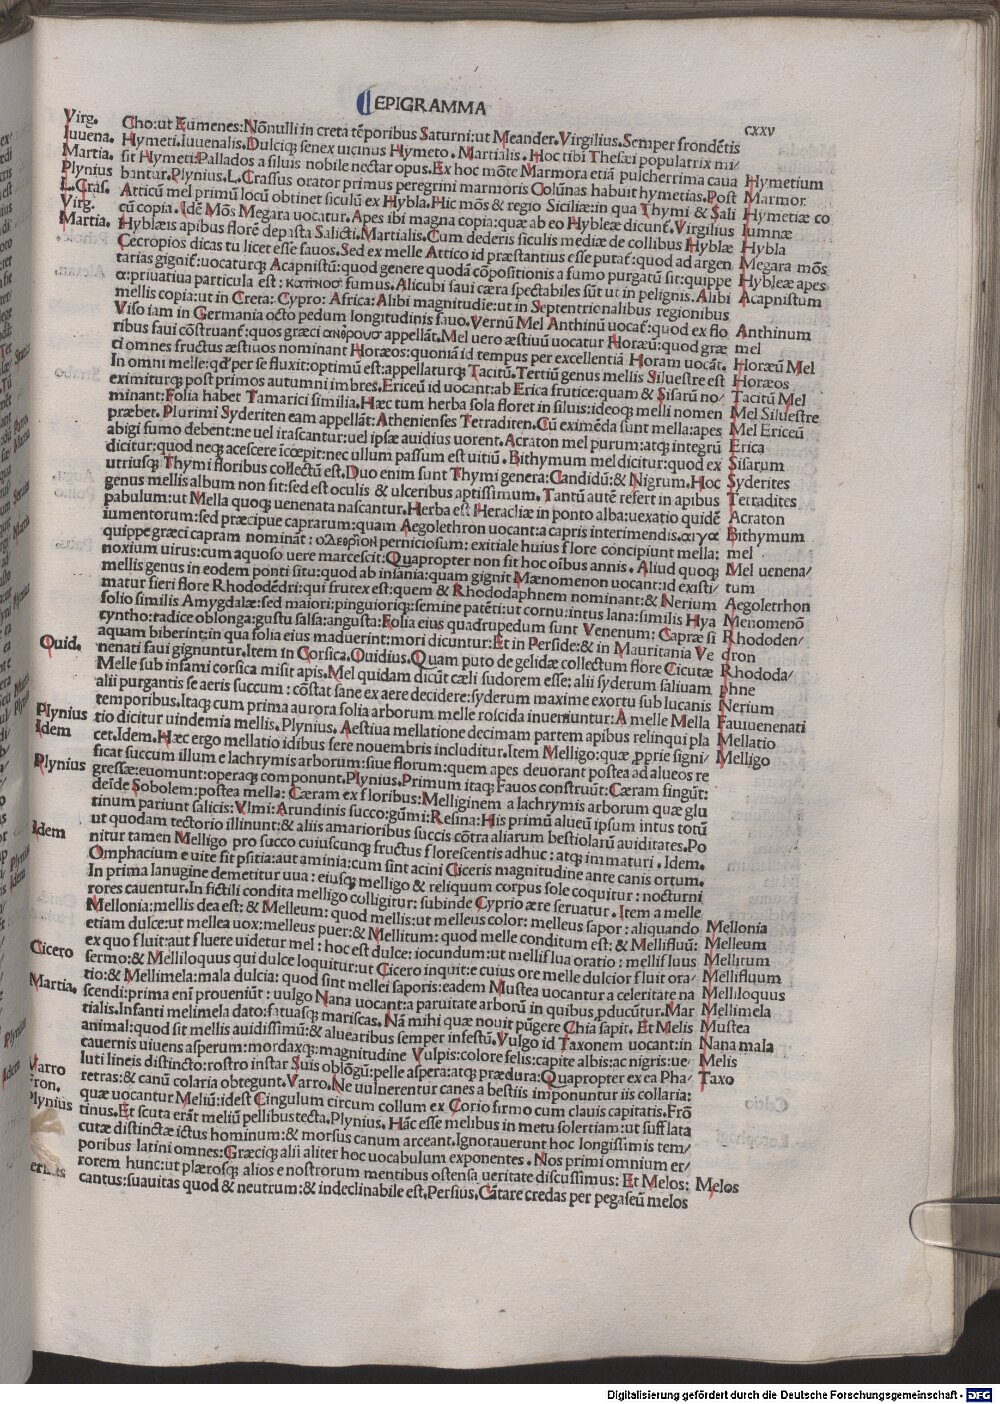 EPIGRAMMA
CXXV
Virg.
Iuuena.
Martia.
Plynius
L.Cras.
Virg.
Martia.
Cho:ut Eumenes:Nōnulli in creta tēporibus Saturni:ut Meander.Virgilius.Semper frondētis
Hymeti.Iuuenalis.Dulciqȝ senex uicinus Hymeto.Martialis.Hoc tibi Thesæi populatrix mi/
sit Hymeti:Pallados a siluis nobile nectar opus.Ex hoc mōte Marmora etiā pulcherrima caua
bantur.Plynius.L.Crassus orator primus peregrini marmoris Colūnas habuit hymetias.Post
Atticū mel primū locū obtinet siculū ex Hybla.Hic mōs & regio Siciliæ:in qua Thymi & Sali
cū copia.Idē Mōs Megara uocatur.Apes ibi magna copia:quæ ab eo Hybleæ dicunt.Virgilius
Hyblæis apibus florē depasta Salicti.Martialis.Cum dederis siculis mediæ de collibus Hyblæ
Cecropios dicas tu licet esse fauos.Sed ex melle Attico id præstantius esse putat:quod ad argen
tarias gignit:uocaturqȝ Acapnistū:quod genere quodā cōpositionis a fumo purgatū sit:quippe
α:priuatiua particula est : καπνοσ fumus.Alicubi faui cæra spectabiles sūt ut in pelignis.Alibi
mellis copia:ut in Creta: Cypro: Africa:Alibi magnitudie:ut in Septentrionalibus regionibus
Viso iam in Germania octo pedum longitudinis fauo.Vernū Mel Anthinū uocat:quod ex flo
ribus faui cōstruant:quos græci ανθρουσ appellāt.Mel uero æstiuū uocatur Horæū:quod græ
ci omnes fructus æstiuos nominant Horæos:quoniā id tempus per excellentiā Horam uocāt.
In omni melle:qd per se fluxit:optimū est:appellaturqȝ Tacitū.Tertiū genus mellis Siluestre est
eximiturqȝ post primos autumni imbres.Ericeū id uocant:ab Erica frutice:quam & Sisarū no/
minant:Folia habet Tamarici similia.Hæc tum herba sola floret in siluis:ideoqȝ melli nomen
præbet.Plurimi Syderiten eam appellāt:Athenienses Tetraditen.Cū eximēda sunt mella:apes
abigi fumo debent:ne uel irascantur:uel ipsæ auidius uorent.Acraton mel purum:atqȝ integrū
dicitur:quod neqȝ acescere icœpit:nec ullum passum est uitiū.Bithymum mel dicitur:quod ex
utriusqȝ Thymi floribus collectū est.Duo enim sunt Thymi genera:Candidū:& Nigrum.Hoc
genus mellis album non fit:sed est oculis & ulceribus aptissimum.Tantū autē refert in apibus
pabulum:ut Mella quoqȝ uenenata nascantur.Herba est Heracliæ in ponto alba:uexatio quidē
iumentorum:sed præcipue caprarum:quam Aegolethron uocant:a capris interimendis.αιγοσ
quippe græci capram nomināt : ολεθριον perniciosum: exitiale huius flore concipiunt mella:
noxium uirus:cum aquoso uere marcescit:Quapropter non fit hoc oibus annis.Aliud quoqȝ
mellis genus in eodem ponti situ:quod ab insania:quam gignit Mænomenon uocant:id existi/
matur fieri flore Rhododēdri:qui frutex est:quem & Rhododaphnem nominant:& Nerium
folio similis Amygdalæ:sed maiori:pinguioriqȝ:semine patēti:ut cornu:intus lana:similis Hya
cyntho:radice oblonga:gustu salsa:angusta:Folia eius quadrupedum sunt Venenum: Capræ si
aquam biberint:in qua folia eius maduerint:mori dicuntur:Et in Perside:& in Mauritania Ve
nenati faui gignuntur.Item in Corsica.Ouidius.Quam puto de gelidæ collectum flore Cicutæ
Melle sub infami corsica misit apis.Mel quidam dicūt cæli sudorem esse: alii syderum saliuam
alii purgantis se aeris succum : cōstat sane ex aere decidere:syderum maxime exortu sub lucanis
temporibus.Itaqȝ cum prima aurora folia arborum melle roscida inueniuntur:A melle Mella
tio dicitur uindemia mellis.Plynius.Aestiua mellatione decimam partem apibus relinqui pla
cet.Idem.Hæc ergo mellatio idibus fere nouembris includitur.Item Melligo:quæ proprie signi/
ficat succum illum e lachrymis arborum:siue florum:quem apes deuorant postea ad alueos re
gressæ:euomunt:operaqȝ componunt.Plynius.Primum itaqȝ Fauos construūt:Cæram fingūt:
deīde Sobolem:postea mella: Cæram ex floribus:Melliginem a lachrymis arborum quæ glu
tinum pariunt salicis:Vlmi:Arundinis succo:gūmi:Resina:His primū alueū ipsum intus totū
ut quodam tectorio illinunt:& aliis amarioribus succis cōtra aliarum bestiolarū auiditates.Po
nitur tamen Melligo pro succo cuiuscunqȝ fructus florescentis adhuc : atqȝ immaturi . Idem.
Omphacium e uite fit psitia:aut aminia:cum sint acini Ciceris magnitudine ante canis ortum.
In prima lanugine demetitur uua : eiusqȝ melligo & reliquum corpus sole coquitur : nocturni
rores cauentur.In fictili condita melligo colligitur: subinde Cyprio ære seruatur . Item a melle
Mellonia:mellis dea est: & Melleum: quod mellis:ut melleus color: melleus sapor: aliquando
etiam dulce:ut mellea uox:melleus puer:& Mellitum: quod melle conditum est: & Mellifluū:
ex quo fluit:aut fluere uidetur mel : hoc est dulce: iocundum:ut melliflua oratio : mellifluus
sermo:& Melliloquus qui dulce loquitur:ut Cicero inquit:e cuius ore melle dulcior fluit ora/
tio:& Mellimela:mala dulcia: quod sint mellei saporis:eadem Mustea uocantur a celeritate na
scendi:prima eni proueniūt : uulgo Nana uocant:a paruitate arborū in quibus producūtur.Mar
tialis.Infanti melimela dato:fatuasqȝ mariscas.Nā mihi quæ nouit pūgere Chia sapit. Et Melis
animal:quod sit mellis auidissimū:& aluearibus semper infestū.Vulgo id Taxonem uocant:in
cauernis uiuens asperum:mordaxqȝ:magnitudine Vulpis:colore felis:capite albis:ac nigris:ue
luti lineis distincto:rostro instar Suis oblōgū:pelle aspera:atqȝ prædura:Quapropter ex ea Pha/
retras:& canū colaria obtegunt.Varro.Ne uulnerentur canes a bestiis imponuntur iis collaria:
quæ uocantur Meliū:idest Cingulum circum collum ex Corio firmo cum clauis capitatis.Frō
tinus.Et scuta erāt meliū pellibus tecta.Plynius. Hāc esse melibus in metu solertiam:ut sufflata
cutæ distinctæ ictus hominum:& morsus canum arceant.Ignorauerunt hoc longissimis tem/
poribus latini omnes:Græciqȝ alii aliter hoc uocabulum exponentes . Nos primi omnium er/
rorem hunc:ut plærosqȝ alios e nostrorum mentibus ostensa ueritate discussimus: Et Melos:
cantus:suauitas quod & neutrum:& indeclinabile est.Persius.Cātare credas per pegaseū melos
Hymetium
Marmor
Hymetiæ co
lumnæ
Hybla
Megara mōs
Hybleæ apes
Acapnistum
Anthinum
mel
Horæū Mel
Horæos
Tacitū Mel
Mel Siluestre
Mel Ericeū
Erica
Sisarum
Syderites
Tetradites
Acraton
Bithymum
mel
Mel uenena/
tum
Aegoletrhon
Menomenō
Rhododen/
dron
Rhododa/
phne
Nerium
Fauuenenati
Mellatio
Melligo
Mellonia
Melleum
Mellitum
Mellifluum
Melliloquus
Mellimela
Mustea
Nana mala
Melis
Taxo
Melos
Ouid.
Plynius
Idem
Plynius
Idem
Cicero
Martia.
Varro
Fron.
Plynius
Digitalisierung gefördert durch die Deutsche Forschungsgemeinschaft - DFG